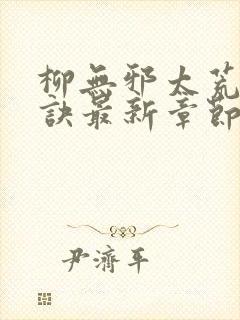 柳無邪太荒
訣最新章節
尹濟平